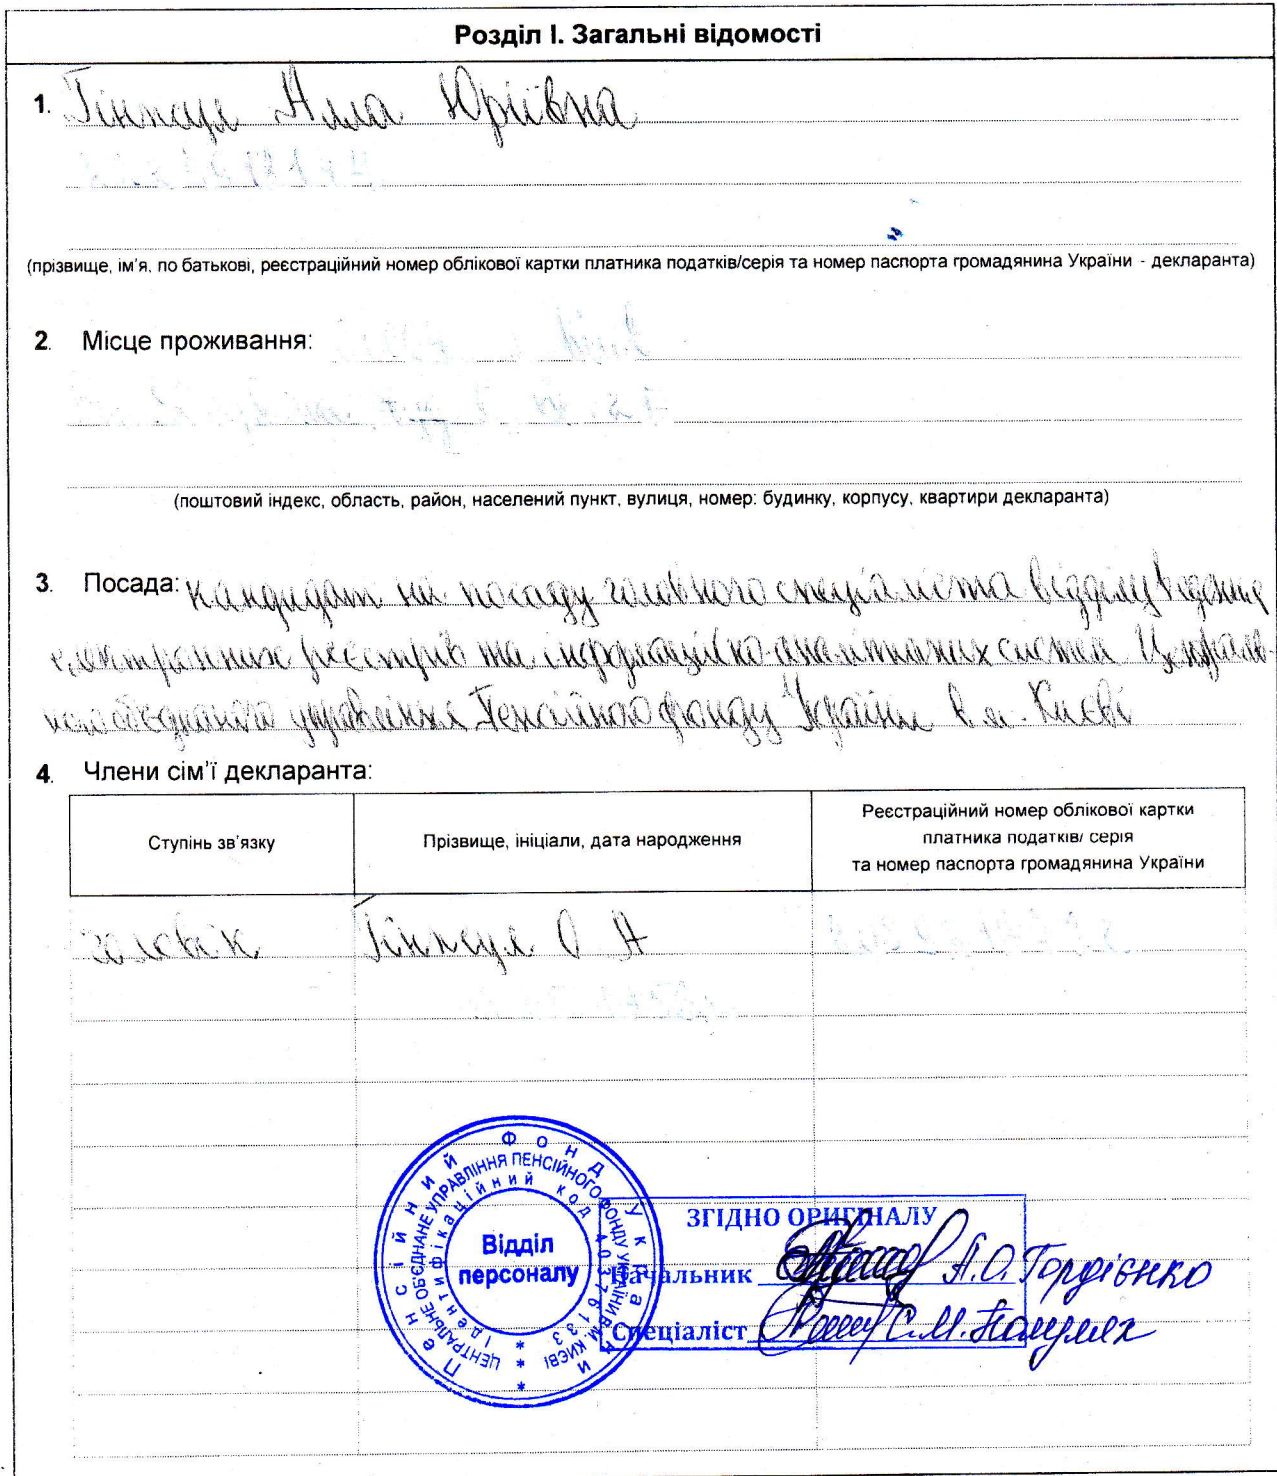 Розділ І. Загальні відомості
1. Алла Юріївна
(прізвище, ім'я, по батькові, реєстраційний номер облікової картки платника податків/серія та номер паспорта громадянина України - декларанта)
2. Місце проживання:
(поштовий індекс, область, район, населений пункт, вулиця, номер: будинку, корпусу, квартири декларанта)
3. Посада: кандидат на посаду головного спеціаліста відділу ведення
електронних реєстрів та інформаційно-аналітичних систем Централь-
ного об'єднаного управління Пенсійного фонду України в м. Києві
4. Члени сім'ї декларанта:
Ступінь зв'язку
Прізвище, ініціали, дата народження
Реєстраційний номер облікової картки
платника податків/ серія
та номер паспорта громадянина України
чоловік О А
Пенсійний фонд України
ЦЕНТРАЛЬНЕ ОБ'ЄДНАНЕ УПРАВЛІННЯ ПЕНСІЙНОГО ФОНДУ УКРАЇНИ В М. КИЄВІ
Ідентифікаційний код 40376133
Відділ
персоналу
ЗГІДНО ОРИГІНАЛУ
Начальник А.О. Гордієнко
Спеціаліст С.М.